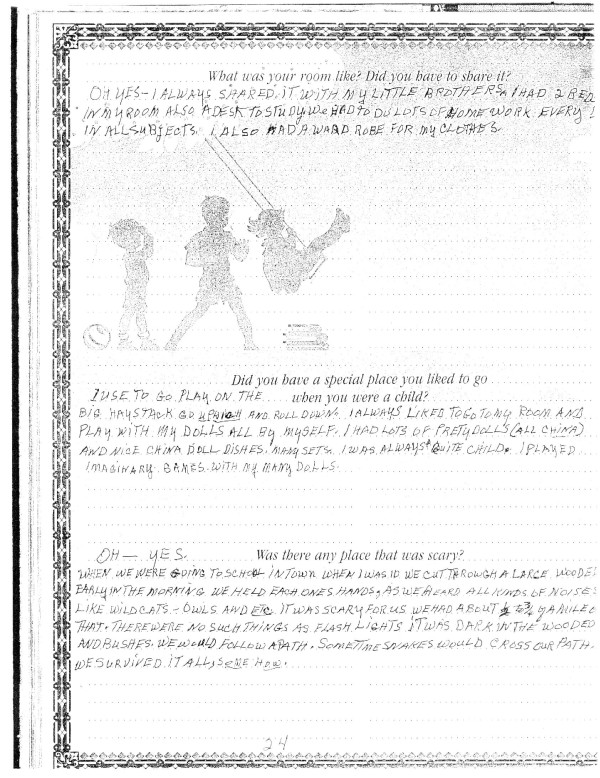 What was your room like? Did you have to share it?
OH YES - I ALWAYS SHARED IT WITH MY LITTLE BROTHERS. I HAD 2 BED
IN MY ROOM ALSO A DESK TO STUDY. WE HAD TO DU LOTS OF HOME WORK EVERY
IN ALL SUBJECTS. I ALSO HAD A WARD ROBE FOR MY CLOTHES.
Did you have a special place you liked to go
I USE TO GO PLAY ON THE when you were a child?
BIG HAYSTACK GO UP HIGH AND ROLL DOWN. I ALWAYS LIKED TO GO TO MY ROOM AND
PLAY WITH MY DOLLS ALL BY MYSELF. I HAD LOTS OF PRETY DOLLS (ALL CHINA)
AND NICE CHINA DOLL DISHES. MANY SETS. I WAS ALWAYS A QUITE CHILD. I PLAYED
IMAGINARY GAMES WITH MY MANY DOLLS.
OH - YES. Was there any place that was scary?
WHEN WE WERE GOING TO SCHOOL IN TOWN WHEN I WAS 10 WE CUT THROUGH A LARGE WOODED
EARLY IN THE MORNING WE HELD EACH ONES HANDS, AS WE HEARD ALL KINDS OF NOISES
LIKE WILD CATS - OWLS AND ETC. IT WAS SCARY FOR US WE HAD ABOUT A MILE O
THAT. THERE WERE NO SUCH THINGS AS FLASH LIGHTS IT WAS DARK IN THE WOODED
AND BUSHES. WE WOULD FOLLOW A PATH. SOMETTIME SNAKES WOULD CROSS OUR PATH.
WE SURVIVED IT ALL, SOME HOW.
24